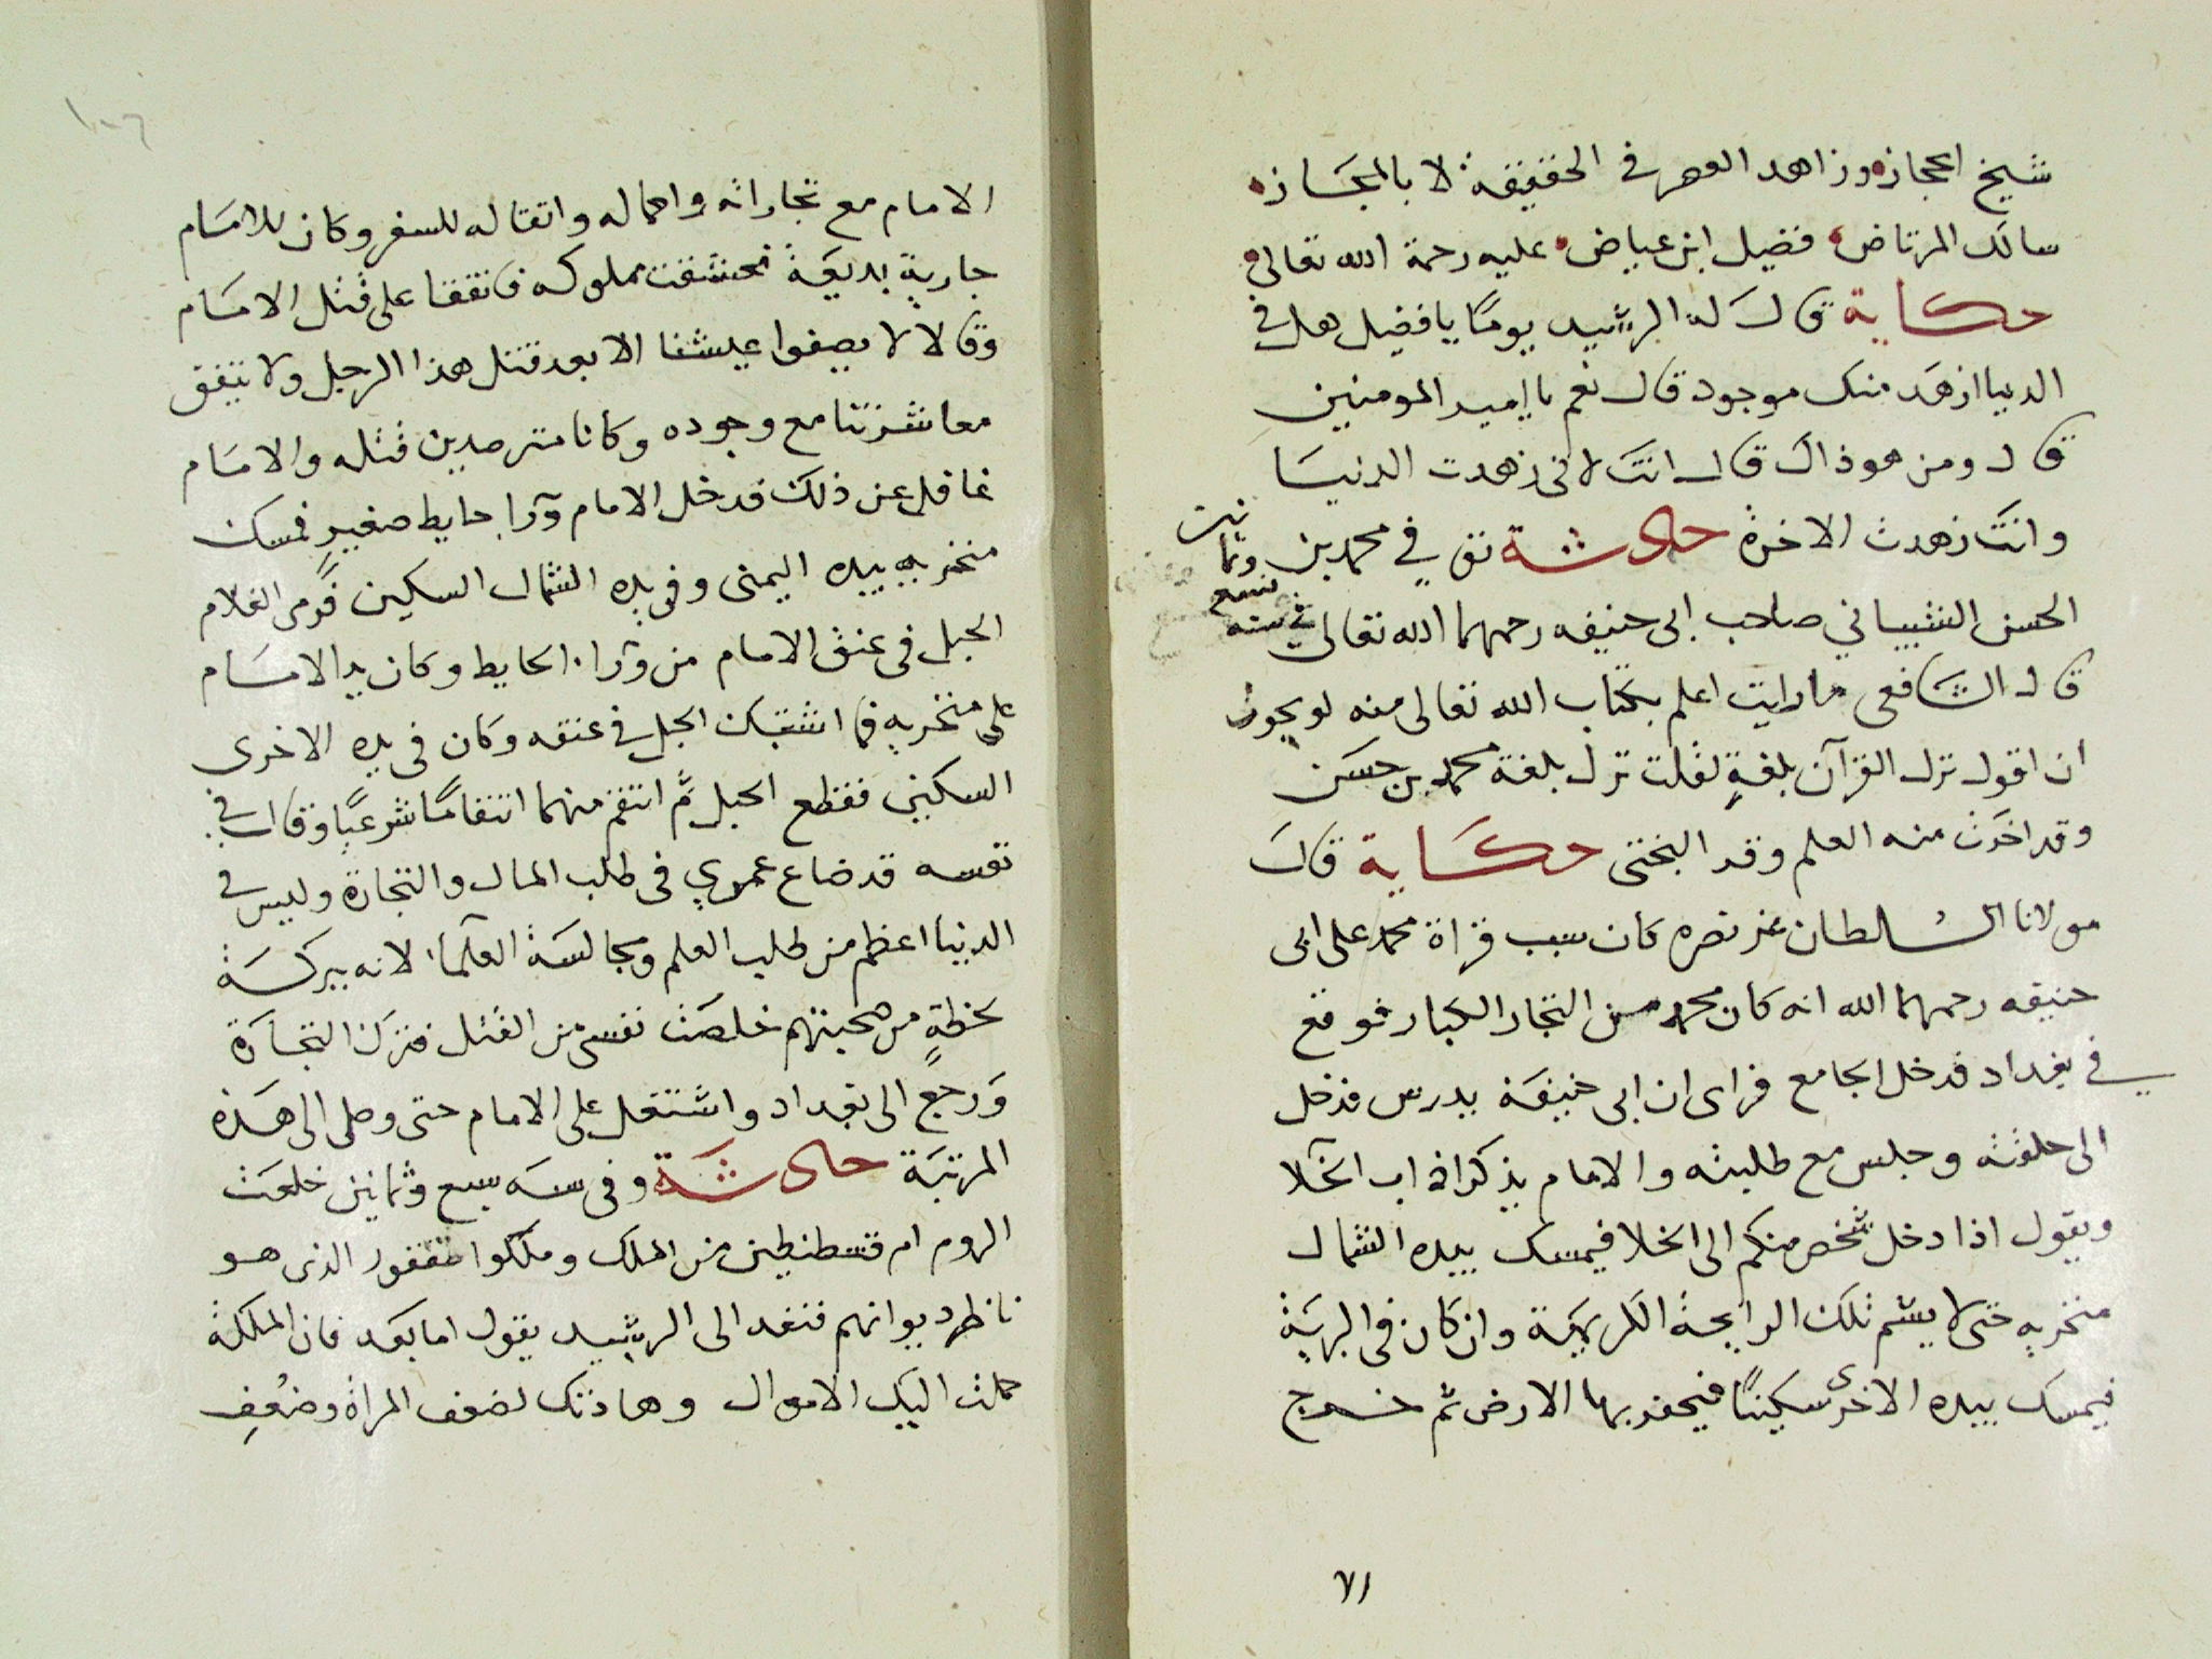 شيخ الحجاز وزاهد العصر في الحقيقة لا بالمجاز
سالك المرتاض فضيل ابن عياض عليه رحمة الله تعالى
حكاية قال له الرشيد يومًا يا فضيل هل في
الدنيا ازهد منك موجود قال نعم يا امير المومنين
قال ومن هو ذاك قال انت لانى زهدت الدنيا
وانت زهدت الاخرة حادثة توفي محمد بن
الحسن الشيباني صاحب ابى حنيفه رحمهما الله تعالى في سنه تسع وثمانين
قال الشافعى ما رايت اعلم بكتاب الله تعالى منه لو يجوز
ان اقول نزل القرآن بلغةٍ لقلت نزل بلغة محمد بن حسن
وقد اخذت منه العلم وقد البختى حكاية قال
مولانا السلطان عز نصره كان سبب قراة محمد على ابى
حنيفه رحمهما الله انه كان محمد من التجار الكبار فوقع
في بغداد فدخل الجامع فراى ان ابى حنيفة يدرس فدخل
الى حلقته وجلس مع طلبته والامام يذكر اداب الخلا
ويقول اذا دخل شخص منكم الى الخلا فيمسك بيده الشمال
منخريه حتى لا يشم تلك الرايحة الكريهة وان كان في البرية
فيمسك بيده الاخرى سكينًا فيحفر بها الارض ثم خرج
٧١
١٠٦
الامام مع تجاراته واحماله واتقاله للسفر وكان للامام
جارية بديعة فعشقت مملوكه فاتفقا على قتل الامام
وقالا لا يصفوا عيشنا الا بعد قتل هذا الرجل ولا يتفق
معاشرتنا مع وجوده وكانا مترصدين قتله والامام
غافل عن ذلك فدخل الامام ورا حايط صغيرٍ فمسك
منخريه بيده اليمنى وفى يده الشمال السكين فرمى الغلام
الحبل فى عنق الامام من ورا الحايط وكان يد الامام
على منخريه فما اشتبك الحبل في عنقه وكان فى يده الاخرى
السكين فقطع الحبل ثم انتقم منهما انتقامًا شرعيًا وقال في
نفسه قد ضاع عمري فى طلب المال والتجارة وليس في
الدنيا اعظم من طلب العلم ومجالسة العلما لانه ببركة
لحظةٍ من صحبتهم خلصت نفسى من القتل فترك التجارة
ورجع الى بغداد واشتغل على الامام حتى وصل الى هذه
المرتبة حادثة وفى سنه سبع وثمانين خلعت
الروم ام قسطنطين من الملك وملكوا نقفور الذى هو
ناظر ديوانهم فنفد الى الرشيد يقول اما بعد فان الملكة
حملت اليك الاموال وهادنتك لضعف المراة وضعف